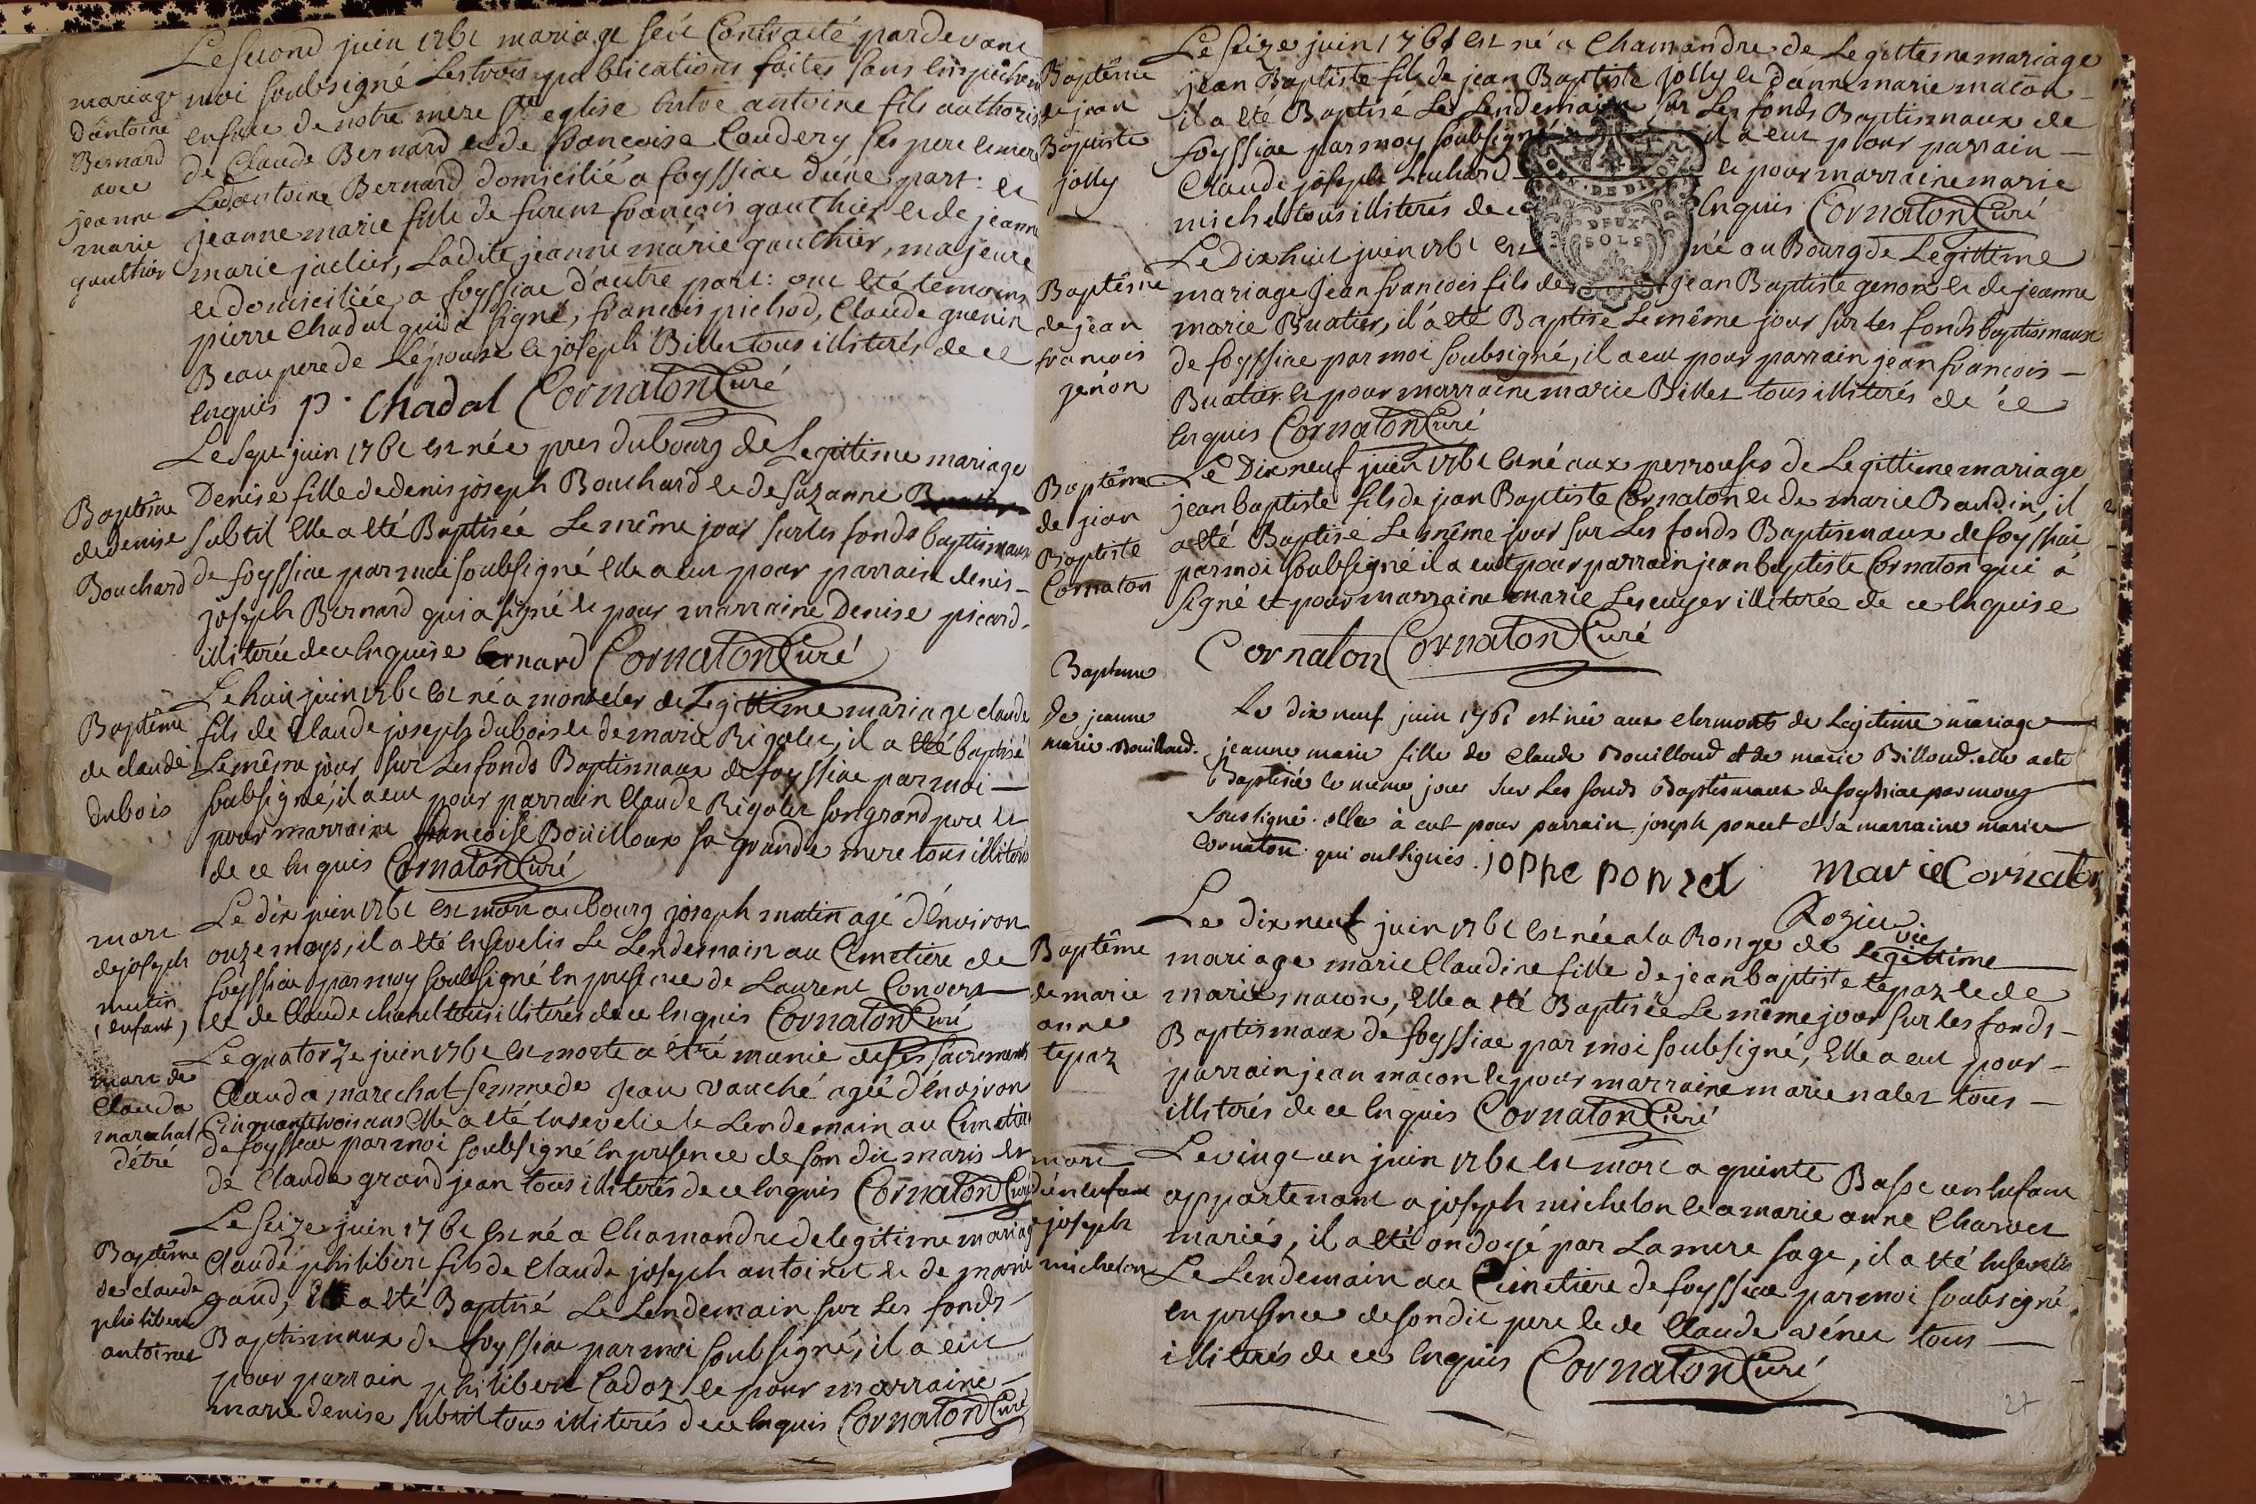 mariage
d'antoine
Bernard
avec
jeanne
marie
gauthier
Le second juin 1761 mariage sest Contracté pardevant
moi soubsigné Les trois publications faites sans Empechem
ensuite de notre mere Ste eglise Entre antoine fils authorisé
de Claude Bernard et de françoise Caudery ses pere et mere
Led. antoine Bernard domicilié a foyssiac d'une part: et
jeanne marie fille de furent françois gauthier et de jeanne
marie jaclier, Ladite jeanne marie gauthier, majeure
et domiciliée a foyssiac d'autre part: ont été temoins
pierre Chadal qui a signé, françois pichod, Claude guenin
Beau pere de Lépouse et joseph Billet tous illiterés de ce
Enquis p. Chadal Cornaton Curé
Baptême
de denise
Bouchard
Le sept juin 1761 est née pres du bourg de Legittime mariage
Denise fille de denis joseph Bouchard et de suzanne
subtil Elle a eté Baptisée Le même jour sur les fonds baptismaux
de foyssiac par moi soubsigné elle a eut pour parrain denis-
joseph Bernard qui a signé et pour marraine Denise picard,
illiterée de ce Enquise bernard Cornaton Curé
Baptême
de claude
dubois
Le huit juin 1761 est né a monteler de Legittime mariage claude
fils de Claude joseph dubois et de marie Rigolet, il a eté baptisé
Le même jour sur Les fonds Baptismaux de foyssiac par moi —
soubsigné, il a eut pour parrain Claude Rigolet son grand pere et
pour marraine françoise Bouilloux sa grande mere tous illiterés
de ce Enquis Cornaton Curé
mort
de joseph
mutin
(enfant)
Le dix juin 1761 est mort au bourg joseph mutin agé d'Environ
onze moys, il a eté Ensevelis Le Lendemain au Cimetiere de
foyssiac par moy soubsigné En presence de Laurent Convert
et de Claude chanel tous illiterés de ce Enquis Cornaton Curé
mort de
Clauda
marechal
d'étré
Le quatorze juin 1761 est morte a étré munie de ses sacrements
Clauda marechal femme de Jean vauché agée d'Environ
Cinquante trois ans Elle a eté Ensevelie le Lendemain au Cimetiere
de foyssiac par moi soubsigné En presence de son dit maris et
de Claude grand jean tous illiterés de ce Enquis Cornaton Curé
Baptême
de claude
philibert
antoinet
Le seize juin 1761 est né a Chamandre de legitime mariage
Claude philibert fils de Claude joseph antoinet et de marie
gaud, a eté Baptisé Le Lendemain sur Les fonds-
Baptismaux de foyssiac par moi soubsigné, il a eut
pour parrain philibert Cadoz et pour marraine —
marie denise subtil tous illiterés de ce Enquis Cornaton Curé
Baptême
de jean
Baptiste
jolly
Le seize juin 1761 est né a Chamandre de Legittime mariage
jean Baptiste fils de jean Baptiste jolly et d'anne marie macon
il a eté Baptisé Le Lendemain sur Les fonds Baptismaux de
foyssiac par moy soubsigné il a eut pour parrain —
Claude joseph Leuhard et pour marraine marie
michel tous illiterés de ce Enquis Cornaton Curé
GEN. DE DIJON
DEUX
SOLS
Baptême
de jean
françois
genon
Le Dix huit juin 1761 est né au Bourg de Legittime
mariage Jean françois fils de jean Baptiste genon et de jeanne
marie Buatier, il a eté Baptisé Le même jour sur Les fonds baptismaux
de foyssiac par moi soubsigné, il a eut pour parrain jean françois —
Buatier et pour marraine marie Billet tous illiterés de ce
Enquis Cornaton Curé
Baptême
de jean
Baptiste
Cornaton
Le Dix neuf juin 1761 est né aux perrouses de Legittime mariage
jean baptiste fils de jean Baptiste Cornaton et de marie Baudin, il
a eté Baptisé Le même jour sur Les fonds Baptismaux de foyssiac
par moi soubsigné il a eut pour parrain jean baptiste Cornaton qui a
signé et pour marraine marie Lescuyer illiterée de ce Enquise
Cornaton Cornaton Curé
Bapteme
De jeanne
marie Bouilloud.
Le dix neuf juin 1761 est née aux clermonts de Legitime mariage
jeanne marie fille de Claude Bouilloud et de marie Billoud. elle a eté
Baptisée le meme jour sur Les fonds Baptismaux de foyssiac par mouy
sousigné. elle a eut pour parrain joseph poncet et sa marraine marie
Cornaton qui ont signés. joPhe ponzet marie Cornaton
Rozier
vic
Baptême
de marie
anne
tepaz
Le dix neuf juin 1761 est née a la Ronge de Legittime
mariage marie Claudine fille de jean baptiste tepaz et de
marie macon, Elle a eté Baptisée Le même jour sur les fonds-
Baptismaux de foyssiac par moi soubsigné, Elle a eut pour-
parrain jean macon et pour marraine marie nalet tous —
illiterés de ce Enquis Cornaton Curé
mort
d'un enfant
a joseph
michelon
Le vingt un juin 1761 est mort a quinte Basse un Enfant
appartenant a joseph michelon et a marie anne Charvet
mariés, il a eté ondoyé par La mere sage, il a eté Ensevelis
Le Lendemain au Cimetiere de foyssiac par moi soubsigné
En presence de son dit pere et de Claude vénet tous —
illiterés de ce Enquis Cornaton Curé
27